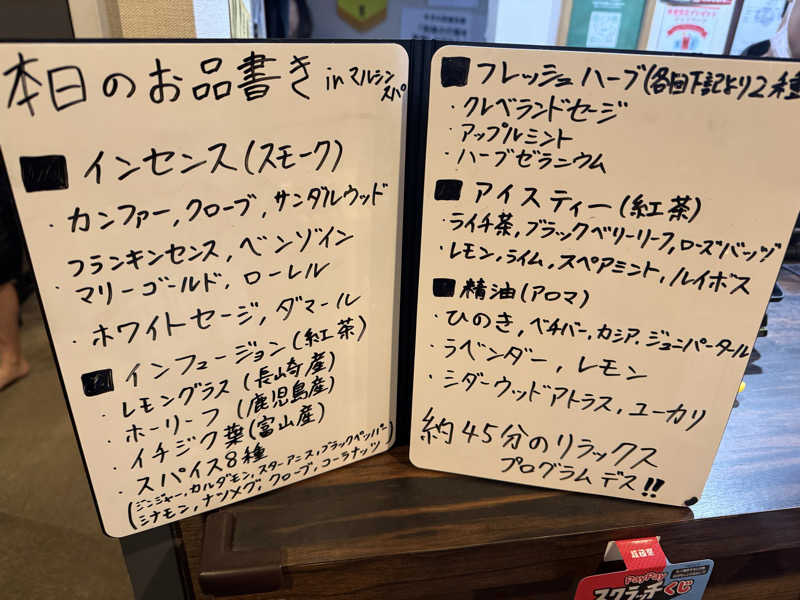 本日のお品書き in マルシンスパ
■ インセンス(スモーク)
・カンファー,クローブ,サンダルウッド
フランキンセンス,ベンゾイン
・マリーゴールド,ローレル
・ホワイトセージ,ダマール
■ インフュージョン(紅茶)
・レモングラス(長崎産)
・ホーリーフ(鹿児島産)
・イチジク葉(富山産)
・スパイス8種
(ジンジャー,カルダモン,スターアニス,ブラックペッパー
シナモン,ナツメグ,クローブ,コーラナッツ)
■ フレッシュハーブ(各回下記より2種
・クレベランドセージ
・アップルミント
・ハーブゼラニウム
■ アイスティー(紅茶)
・ライチ茶,ブラックベリーリーフ,ローズバッヅ
・レモン,ライム,スペアミント,ルイボス
■ 精油(アロマ)
・ひのき,ベチバー,カシア,ジュニパータール
・ラベンダー,レモン
・シダーウッドアトラス,ユーカリ
約45分のリラックス
プログラムデス!!
超PayPay祭
PayPay
スクラッチくじ